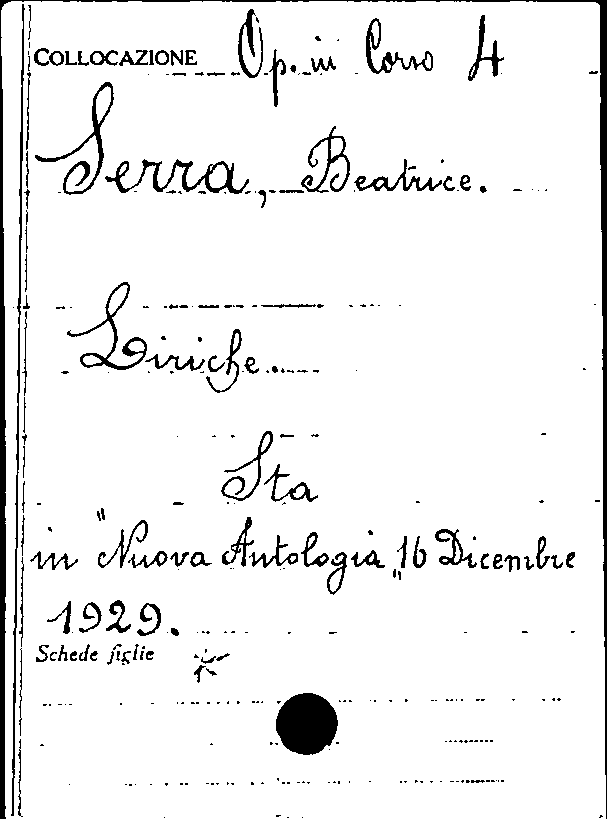 COLLOCAZIONE Op. in Corso 4
Serra, Beatrice.
Liriche.
Sta
in "Nuova Antologia„ 16 Dicembre
1929.
Schede figlie